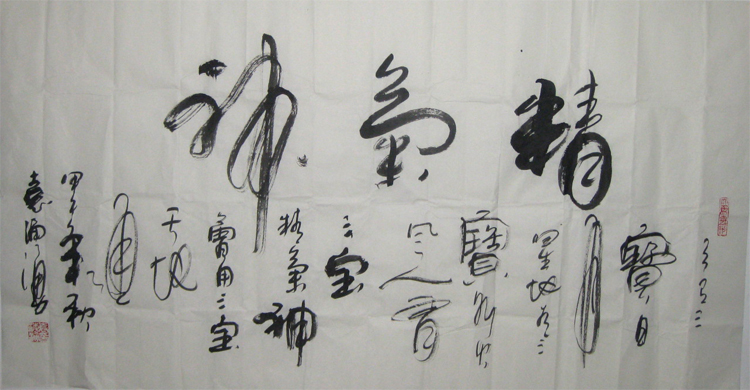 精氣神
天有三
寶日
月
星地有三
寶水火
風人有
三宝
精氣神
會用三宝
天地
通
甲午年秋